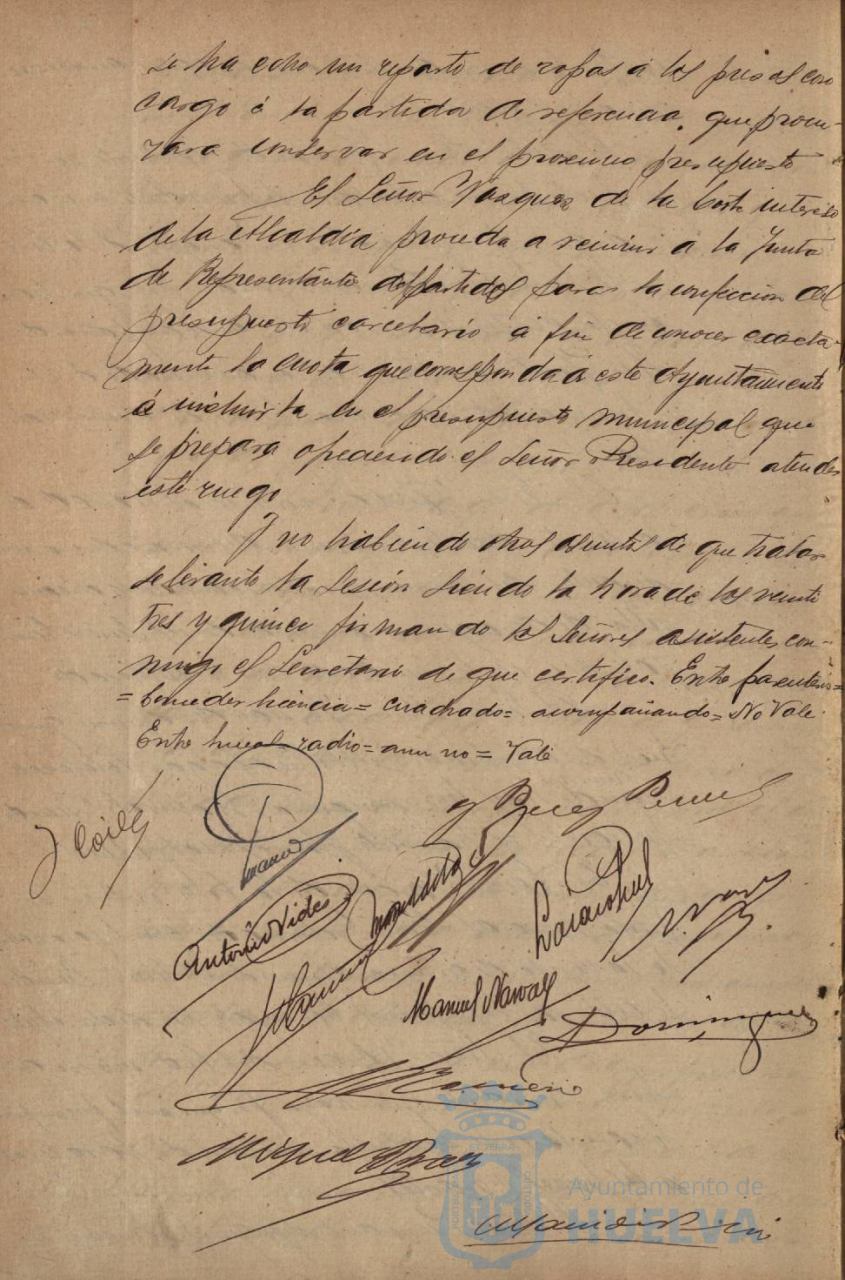 se ha echo un reparto de ropas á los presos con
cargo á la partida de referencia, que procu-
rara conservar en el proximo presupuesto
El Señor Vazquez de la Corte intereso
de la Alcaldía proceda a reunir a la Junta
de Representante del partido para la confección del
presupuesto carcelario á fin de conocer exacta-
mente la cuota que corresponda á este Ayuntamiento
é incluirla en el presupuesto municipal que
se prepara ofreciendo el Señor Presidente atender
este ruego
Y no habiendo otros asuntos de que tratar
se levanto la sesión siendo la hora de las veinti
tres y quince firmando los Señores asistentes con-
migo el Secretario de que certifico. Entre parentesis=
= Conceder licencia= cuadrado= acompañando= No Vale.
Entre lineas radio= aun no = Vale
Antonio Vides
Manuel Narvaez
Dominguez
Romero
Miguel
Ayuntamiento de
HUELVA